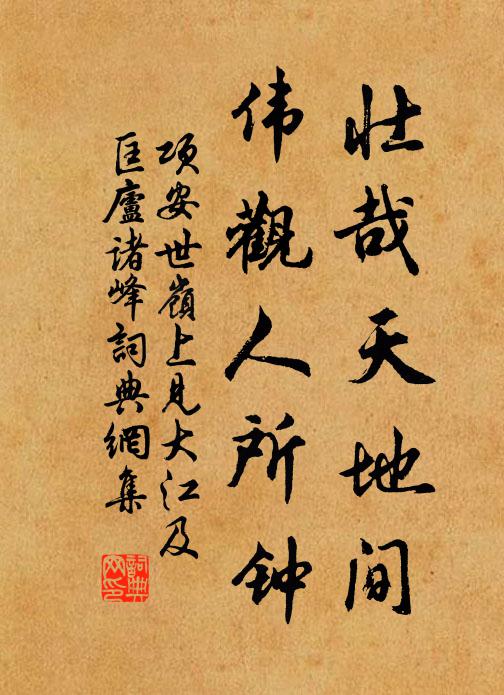 壮哉天地间
伟觀人所钟
项安世嶺上见大江及
匡廬诸峰詞典網集
詞典
网印